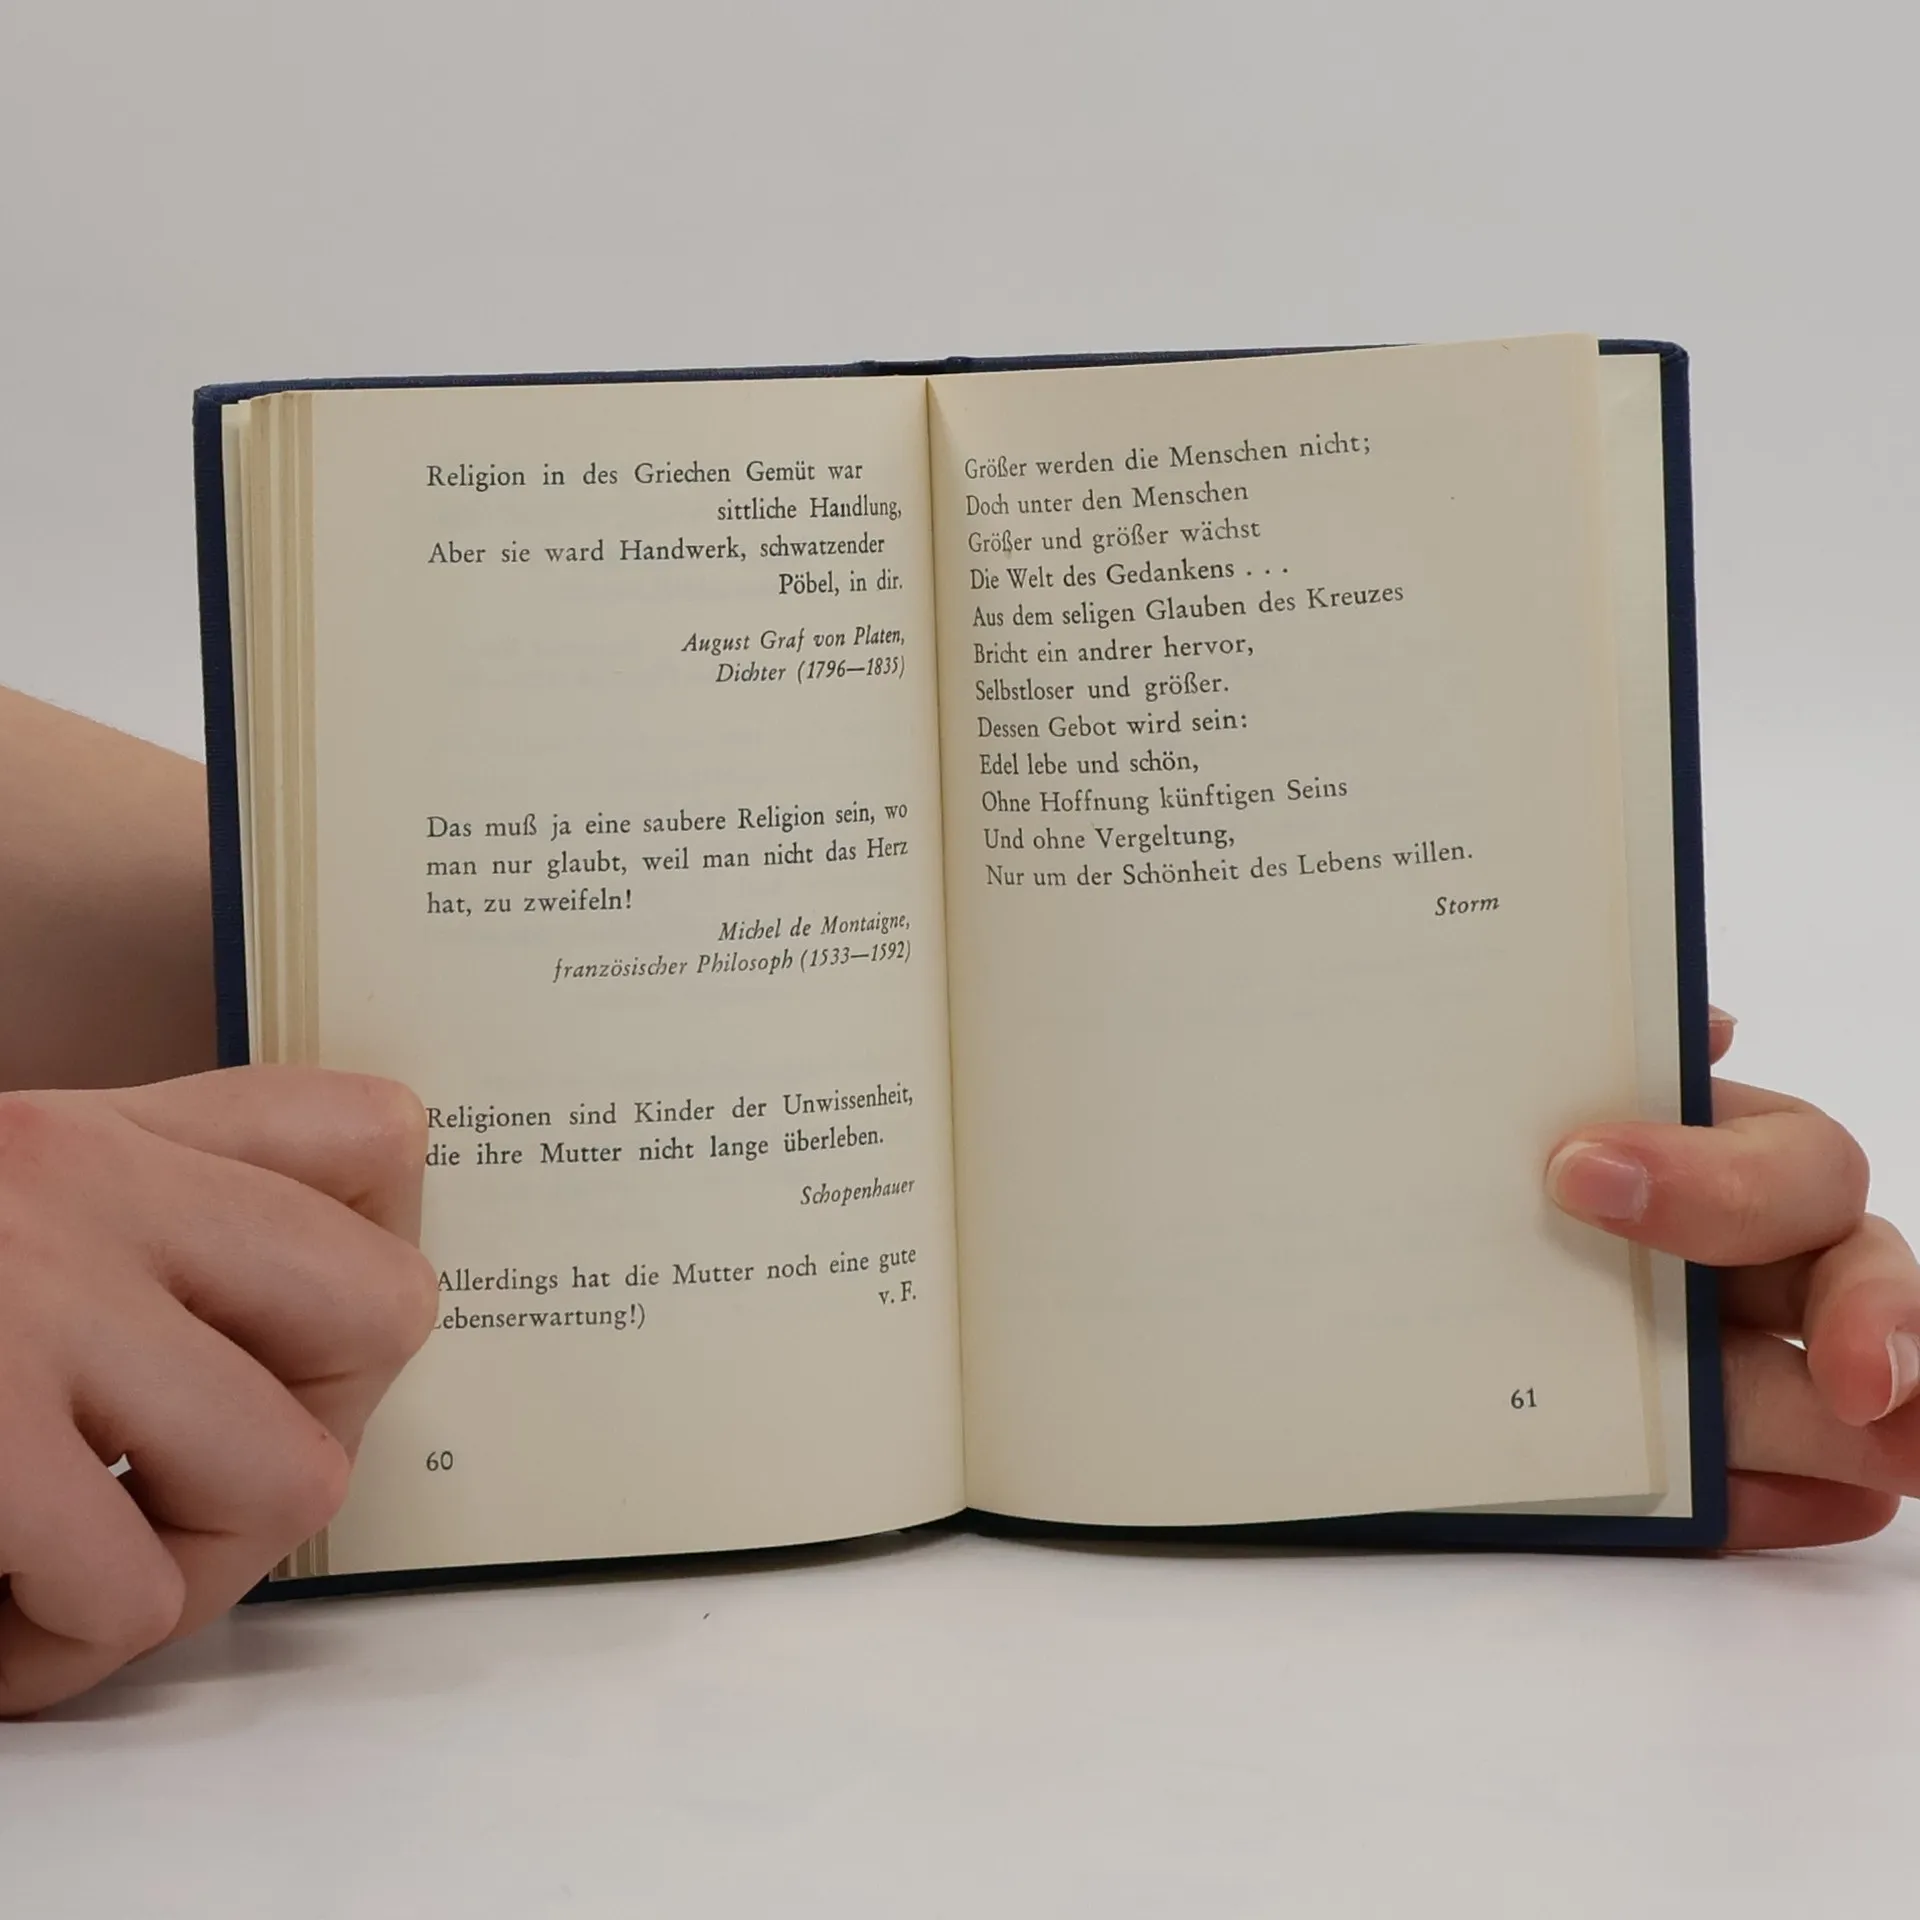 Religion in des Griechen Gemüt war
sittliche Handlung,
Aber sie ward Handwerk, schwatzender
Pöbel, in dir.
August Graf von Platen,
Dichter (1796—1835)
Das muß ja eine saubere Religion sein, wo
man nur glaubt, weil man nicht das Herz
hat, zu zweifeln!
Michel de Montaigne,
französischer Philosoph (1533—1592)
Religionen sind Kinder der Unwissenheit,
die ihre Mutter nicht lange überleben.
Schopenhauer
Allerdings hat die Mutter noch eine gute
Lebenserwartung!) v. F.
60
Größer werden die Menschen nicht;
Doch unter den Menschen
Größer und größer wächst
Die Welt des Gedankens . . .
Aus dem seligen Glauben des Kreuzes
Bricht ein andrer hervor,
Selbstloser und größer.
Dessen Gebot wird sein:
Edel lebe und schön,
Ohne Hoffnung künftigen Seins
Und ohne Vergeltung,
Nur um der Schönheit des Lebens willen.
Storm
61